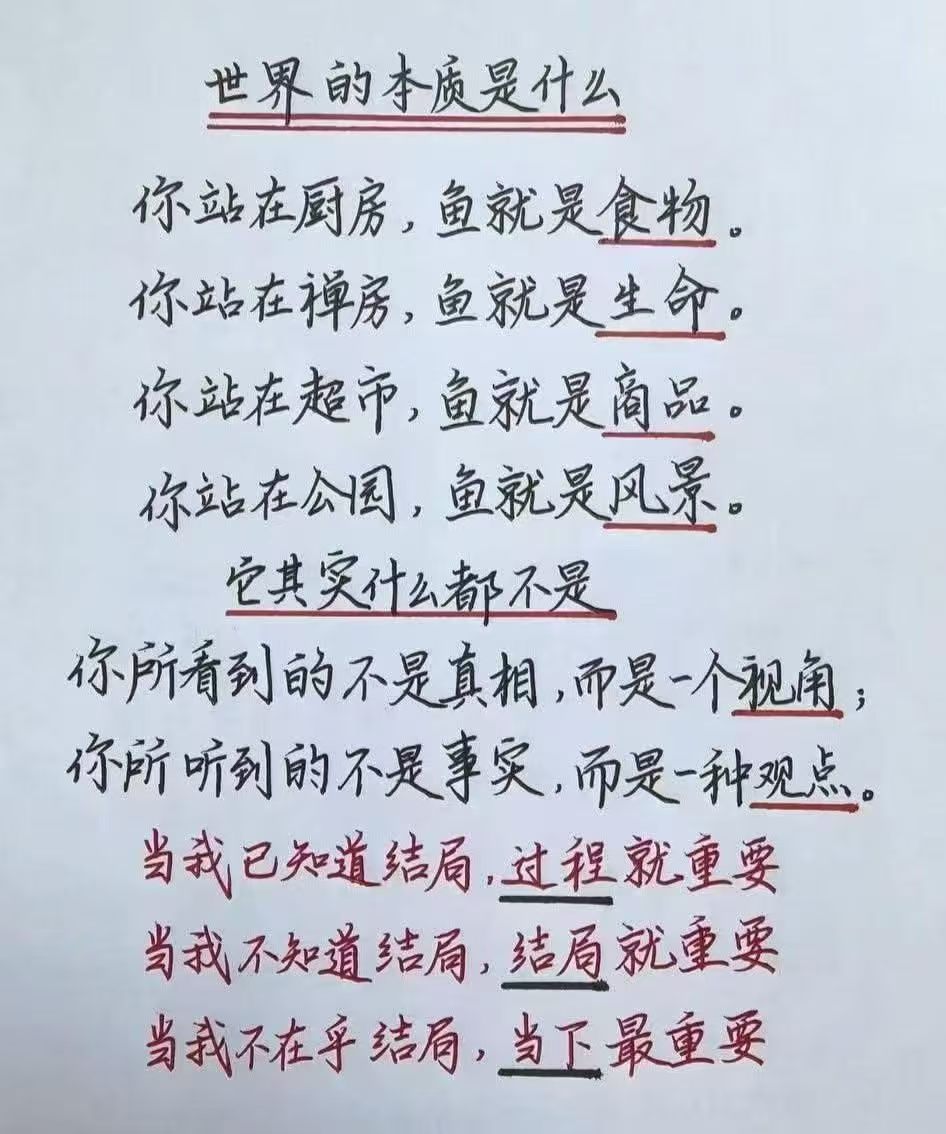 世界的本质是什么
你站在厨房，鱼就是食物。
你站在禅房，鱼就是生命。
你站在超市，鱼就是商品。
你站在公园，鱼就是风景。
它其实什么都不是
你所看到的不是真相，而是一个视角；
你所听到的不是事实，而是一种观点。
当我已知道结局，过程就重要
当我不知道结局，结局就重要
当我不在乎结局，当下最重要